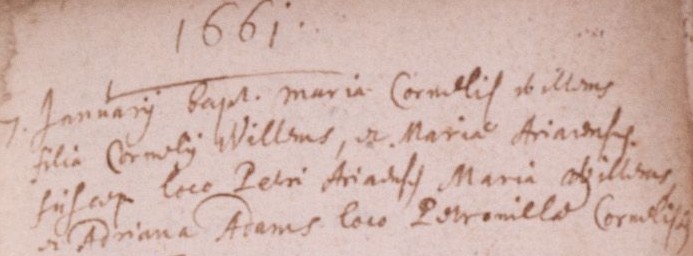 1661.
7. Januarij bapt. Maria Cornelis Willems
filia Cornelij Willems, et Mariæ Ariaensch.
suscep loco Petri Ariaensch Maria Willems
et Adriana Adams loco Petronillæ Cornelis